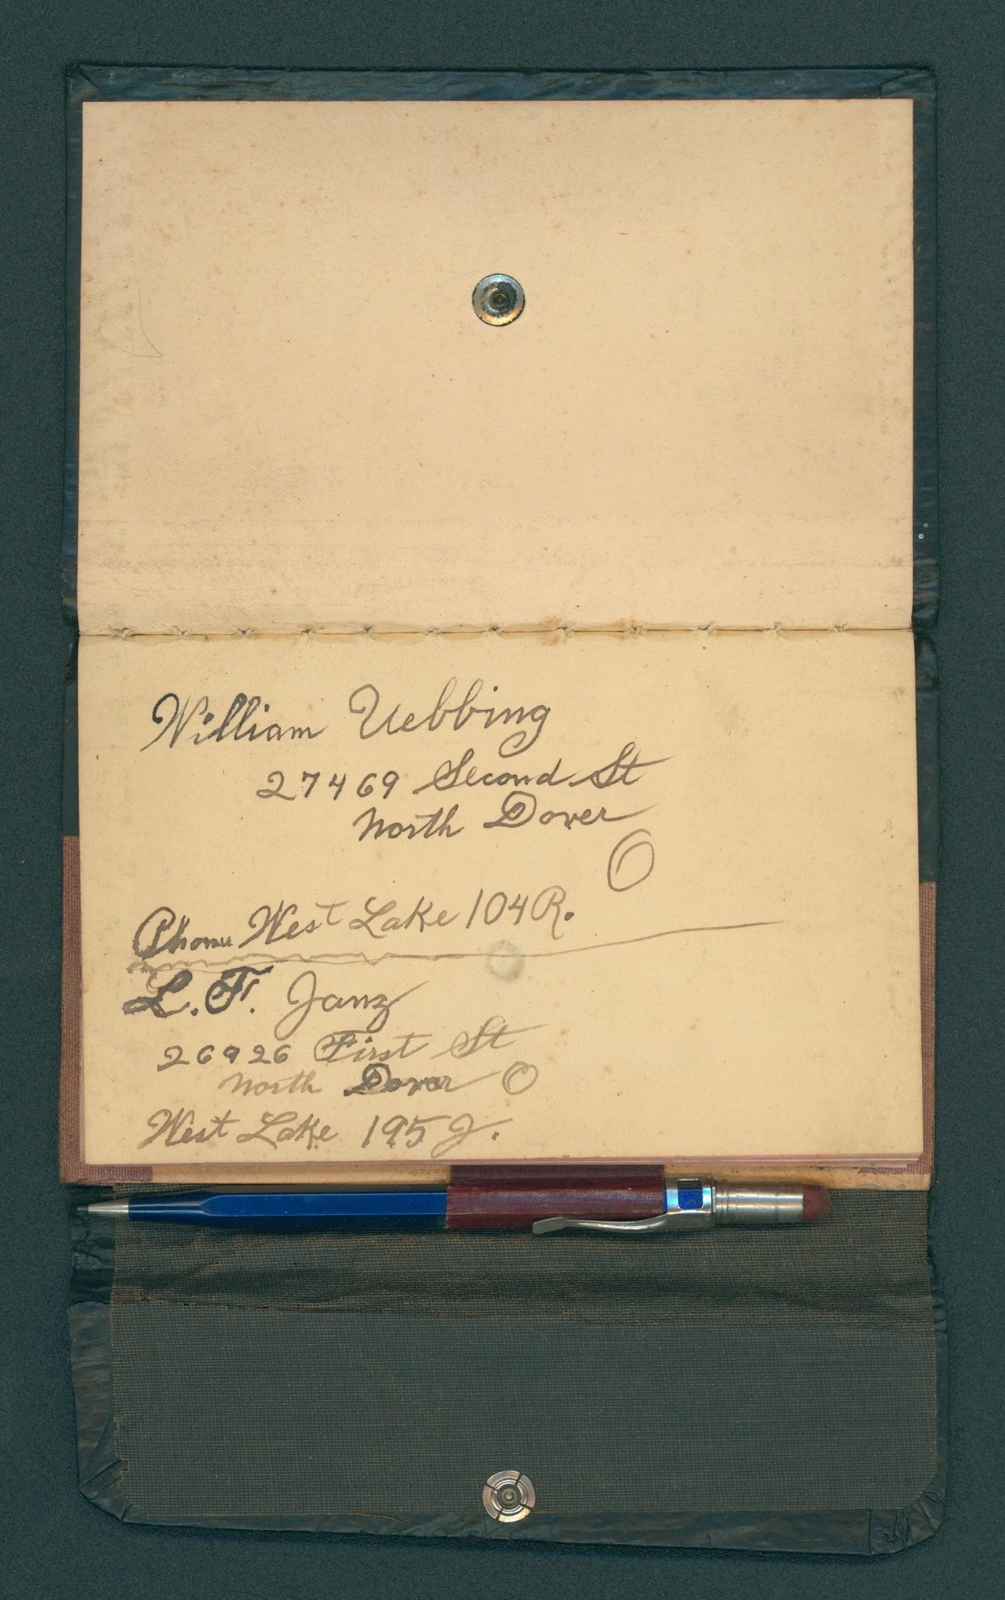 William Uebbing
27469 Second St
North Dover
O
Phone West Lake 104R.
L.F. Janz
26926 First St
North Dover O
West Lake 195J.